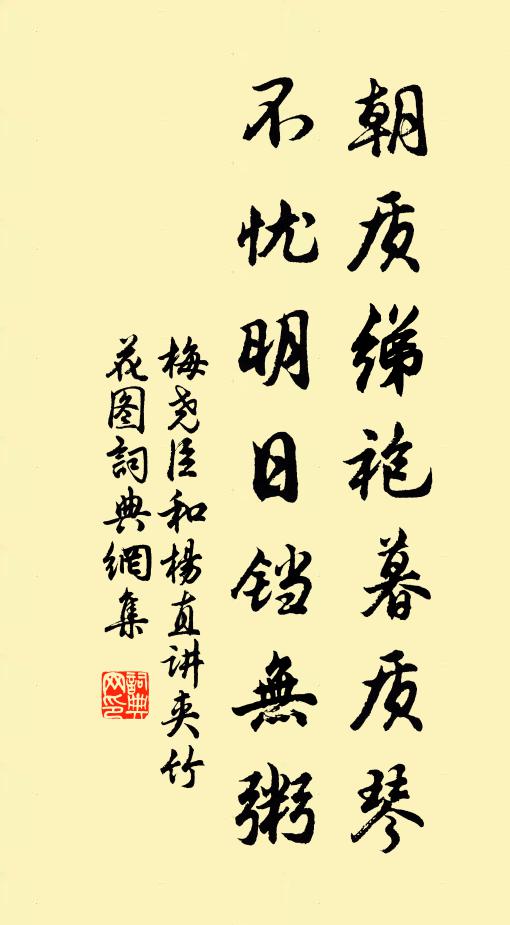 朝质绨袍暮质琴
不忧明日铛無粥
梅尧臣和杨直讲夹竹
花图詞典網集
詞典
网印